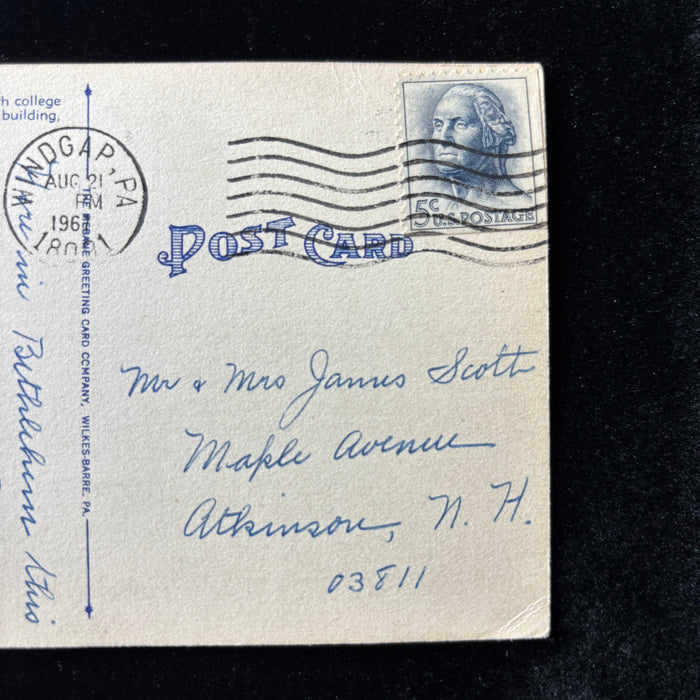 h college
building,
NDGAP, PA
AUG 21
PM
5¢ U.S. POSTAGE
POST CARD
THE HERITAGE GREETING CARD COMPANY, WILKES-BARRE, PA.
in Bethlehem this
Mr & Mrs James Scott
Maple Avenue
Atkinson, N. H.
03811